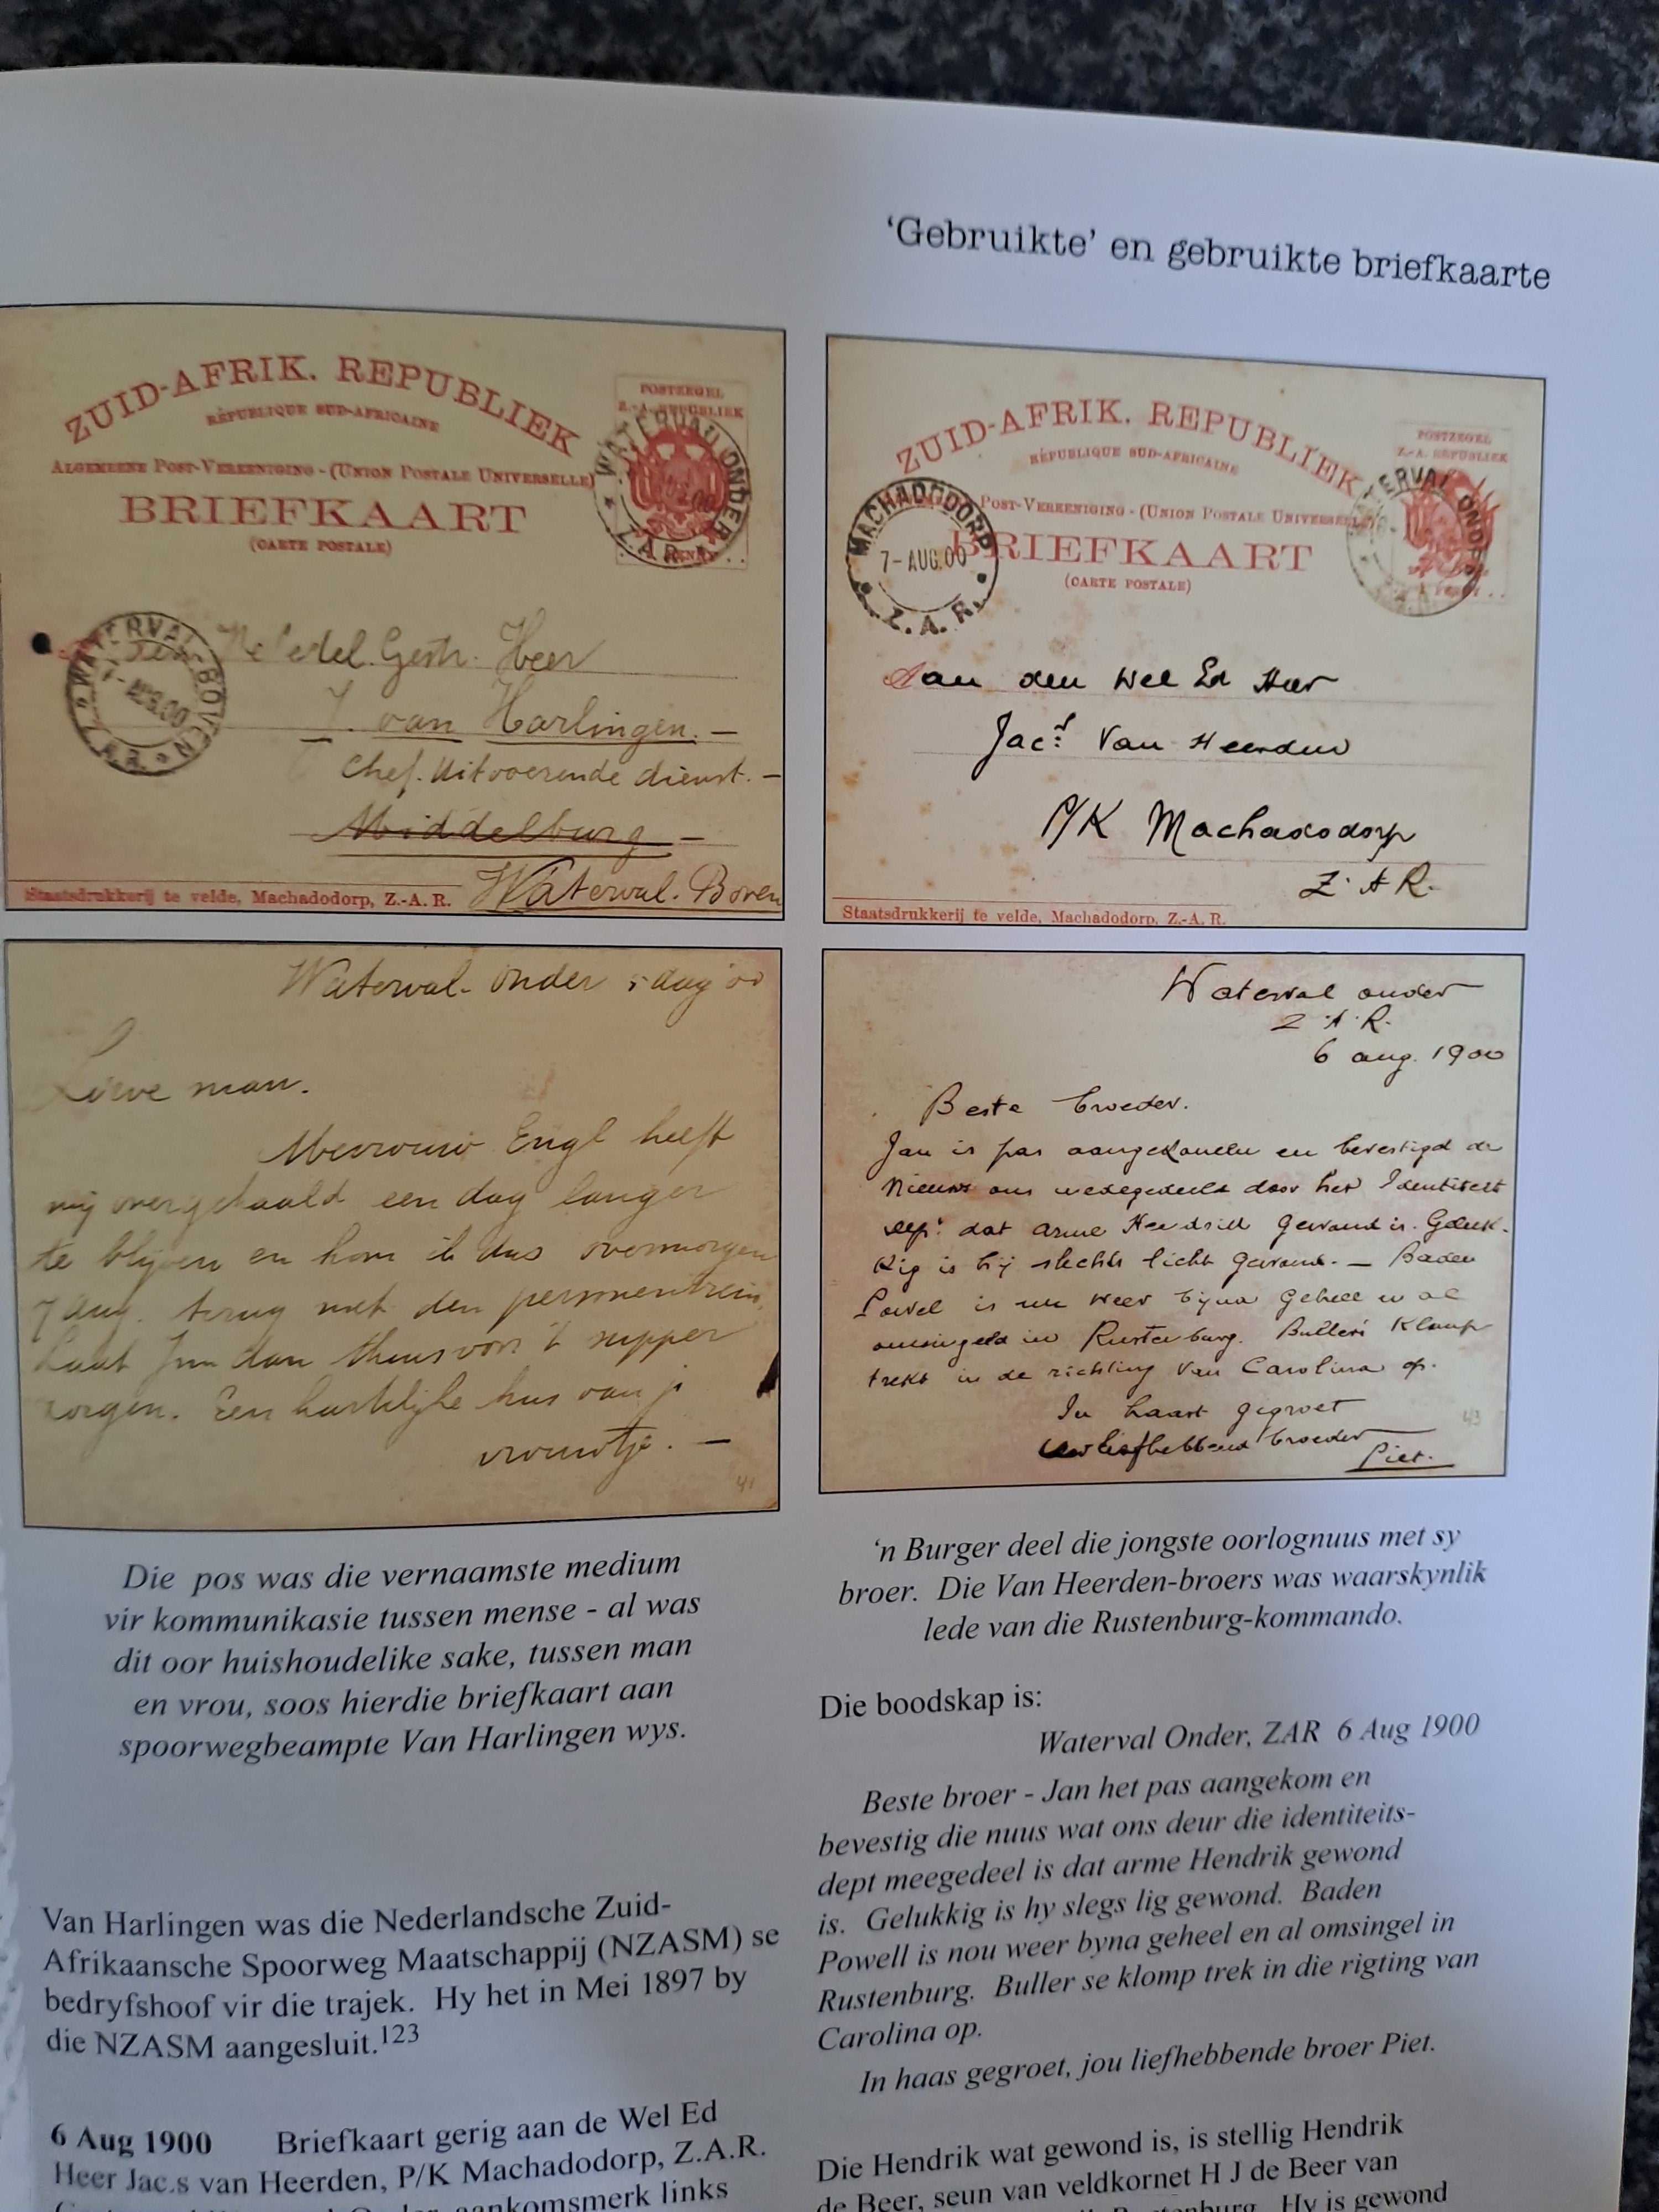 ‘Gebruikte’ en gebruikte briefkaarte
ZUID-AFRIK. REPUBLIEK
RÉPUBLIQUE SUD-AFRICAINE
ALGEMEENE POST-VEREENIGING - (UNION POSTALE UNIVERSELLE)
BRIEFKAART
(CARTE POSTALE)
POSTZEGEL
Z.-A. REPUBLIEK
WATERVAL ONDER
Z.A.R.
WATERVAL-BOVEN
AUG.00
Edel. Gestr. Heer
J. van Harlingen. —
Chef. Uitvoerende dienst. —
Middelburg —
Waterval. Boven
Staatsdrukkerij te velde, Machadodorp, Z.-A. R.
Waterval- Onder 5 Aug '00
Lieve man.
Mevrouw Engl heeft
mij overgehaald een dag langer
te blijven en kom ik dus overmorgen
7 Aug. terug met den personentrein.
Laat Jim dan thuis voor 't supper
zorgen. Een hartelijke kus van je
vrouwtje. —
41
Die pos was die vernaamste medium
vir kommunikasie tussen mense - al was
dit oor huishoudelike sake, tussen man
en vrou, soos hierdie briefkaart aan
spoorwegbeampte Van Harlingen wys.
Van Harlingen was die Nederlandsche Zuid-
Afrikaansche Spoorweg Maatschappij (NZASM) se
bedryfshoof vir die trajek. Hy het in Mei 1897 by
die NZASM aangesluit.123
6 Aug 1900 Briefkaart gerig aan de Wel Ed
Heer Jac.s van Heerden, P/K Machadodorp, Z.A.R.
aankomsmerk links
ZUID-AFRIK. REPUBLIEK
RÉPUBLIQUE SUD-AFRICAINE
POST-VEREENIGING - (UNION POSTALE UNIVERSELLE)
BRIEFKAART
(CARTE POSTALE)
POSTZEGEL
Z.-A. REPUBLIEK
MACHADODORP
7-AUG.00
Z.A.R.
WATERVAL ONDER
Aan den Wel Ed Heer
Jac.s Van Heerden
P/K Machadodorp
Z. A R.
Staatsdrukkerij te velde, Machadodorp, Z.-A. R.
Waterval onder
Z. A. R.
6 aug. 1900
Beste broeder.
Jan is pas aangekomen en bevestigd de
Nieuws ons medegedeeld door het Identiteit
dep: dat arme Hendrik gewond is. Geluk-
kig is hij slechts licht gewond. — Baden
Powel is nu weer bijna geheel en al
omsingeld in Rustenburg. Bullers Klomp
trekt in de richting van Carolina op.
In haast gegroet
Uw liefhebbend broeder
Piet.
43
‘n Burger deel die jongste oorlognuus met sy
broer. Die Van Heerden-broers was waarskynlik
lede van die Rustenburg-kommando.
Die boodskap is:
Waterval Onder, ZAR 6 Aug 1900
Beste broer - Jan het pas aangekom en
bevestig die nuus wat ons deur die identiteits-
dept meegedeel is dat arme Hendrik gewond
is. Gelukkig is hy slegs lig gewond. Baden
Powell is nou weer byna geheel en al omsingel in
Rustenburg. Buller se klomp trek in die rigting van
Carolina op.
In haas gegroet, jou liefhebbende broer Piet.
Die Hendrik wat gewond is, is stellig Hendrik
de Beer, seun van veldkornet H J de Beer van
Rustenburg. Hy is gewond